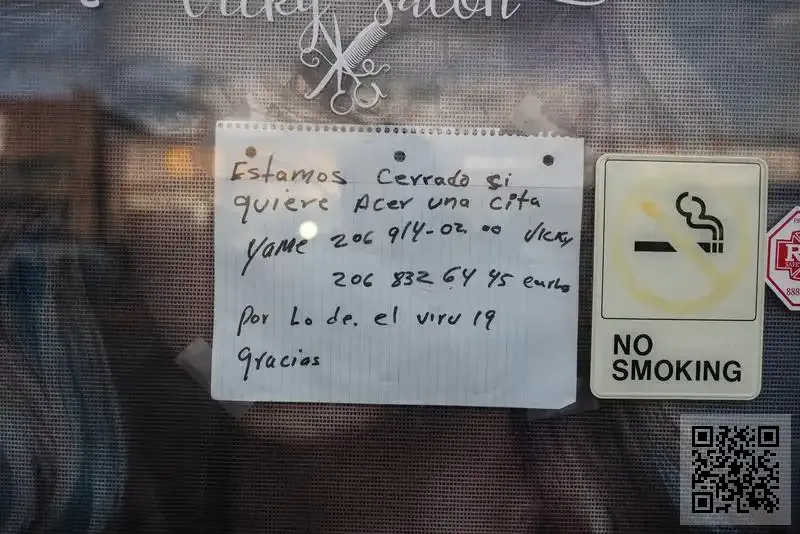 Vicky Salon
Estamos Cerrado si
quiere Acer una cita
Yame 206 914-02 00 Vicky
206 832 64 45
Por Lo de. el viru 19
gracias
NO
SMOKING
888